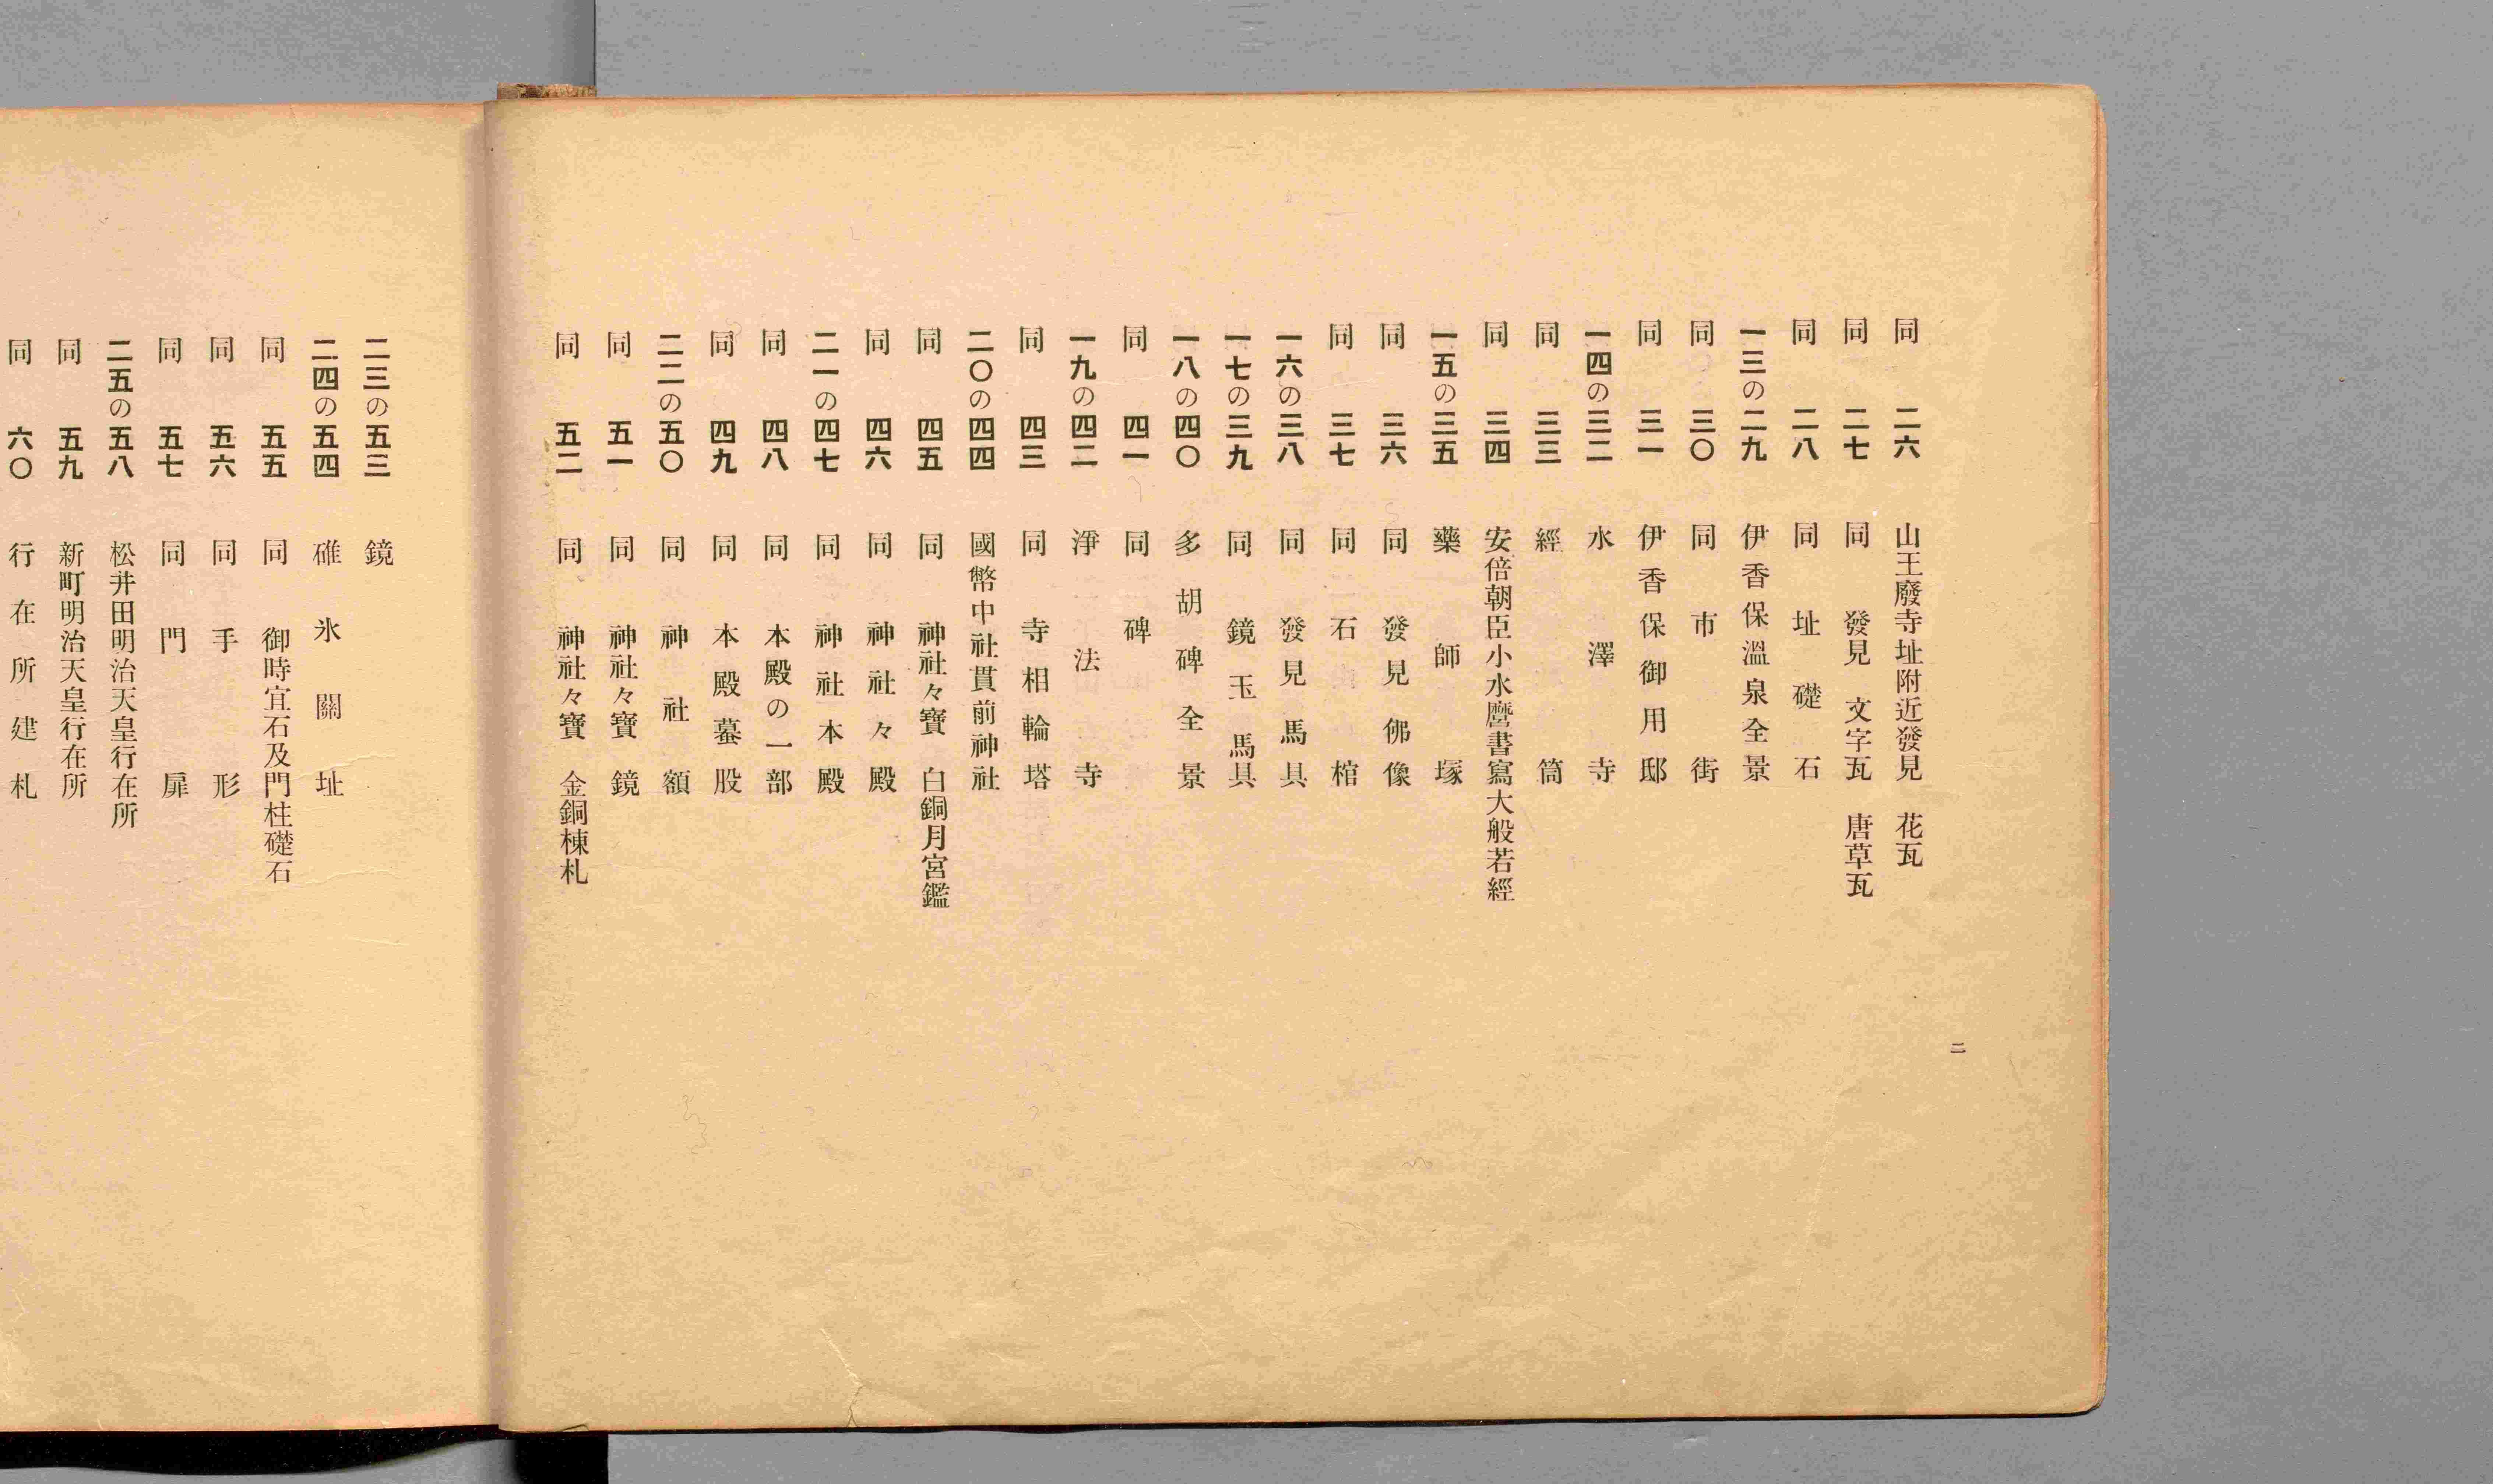 二
同 二六 山王廢寺址附近發見 花瓦
同 二七 同 發見 文字瓦 唐草瓦
同 二八 同址礎石
一三の二九 伊香保溫泉全景
同 三〇 同市街
同 三一 伊香保御用邸
一四の三二 水澤寺
同 三三 經筒
同 三四 安倍朝臣小水麿書寫大般若經
一五の三五 藥師塚
同 三六 同發見佛像
同 三七 同石棺
一六の三八 同發見馬具
一七の三九 同鏡玉 馬具
一八の四〇 多胡碑全景
同 四一 同碑
一九の四二 淨法寺
同 四三 同寺相輪塔
二〇の四四 國幣中社貫前神社
同 四五 同 神社々寶 白銅月宮鑑
同 四六 同神社々殿
二一の四七 同神社本殿
同 四八 同本殿の一部
同 四九 同本殿蟇股
二二の五〇 同神社額
同 五一 同 神社々寶 鏡
同 五二 同 神社々寶 金銅棟札
二三の五三 鏡
二四の五四 碓氷關址
同 五五 同 御時宜石及門柱礎石
同 五六 同手形
同 五七 同門扉
二五の五八 松井田明治天皇行在所
同 五九 新町明治天皇行在所
同 六〇 行在所建札